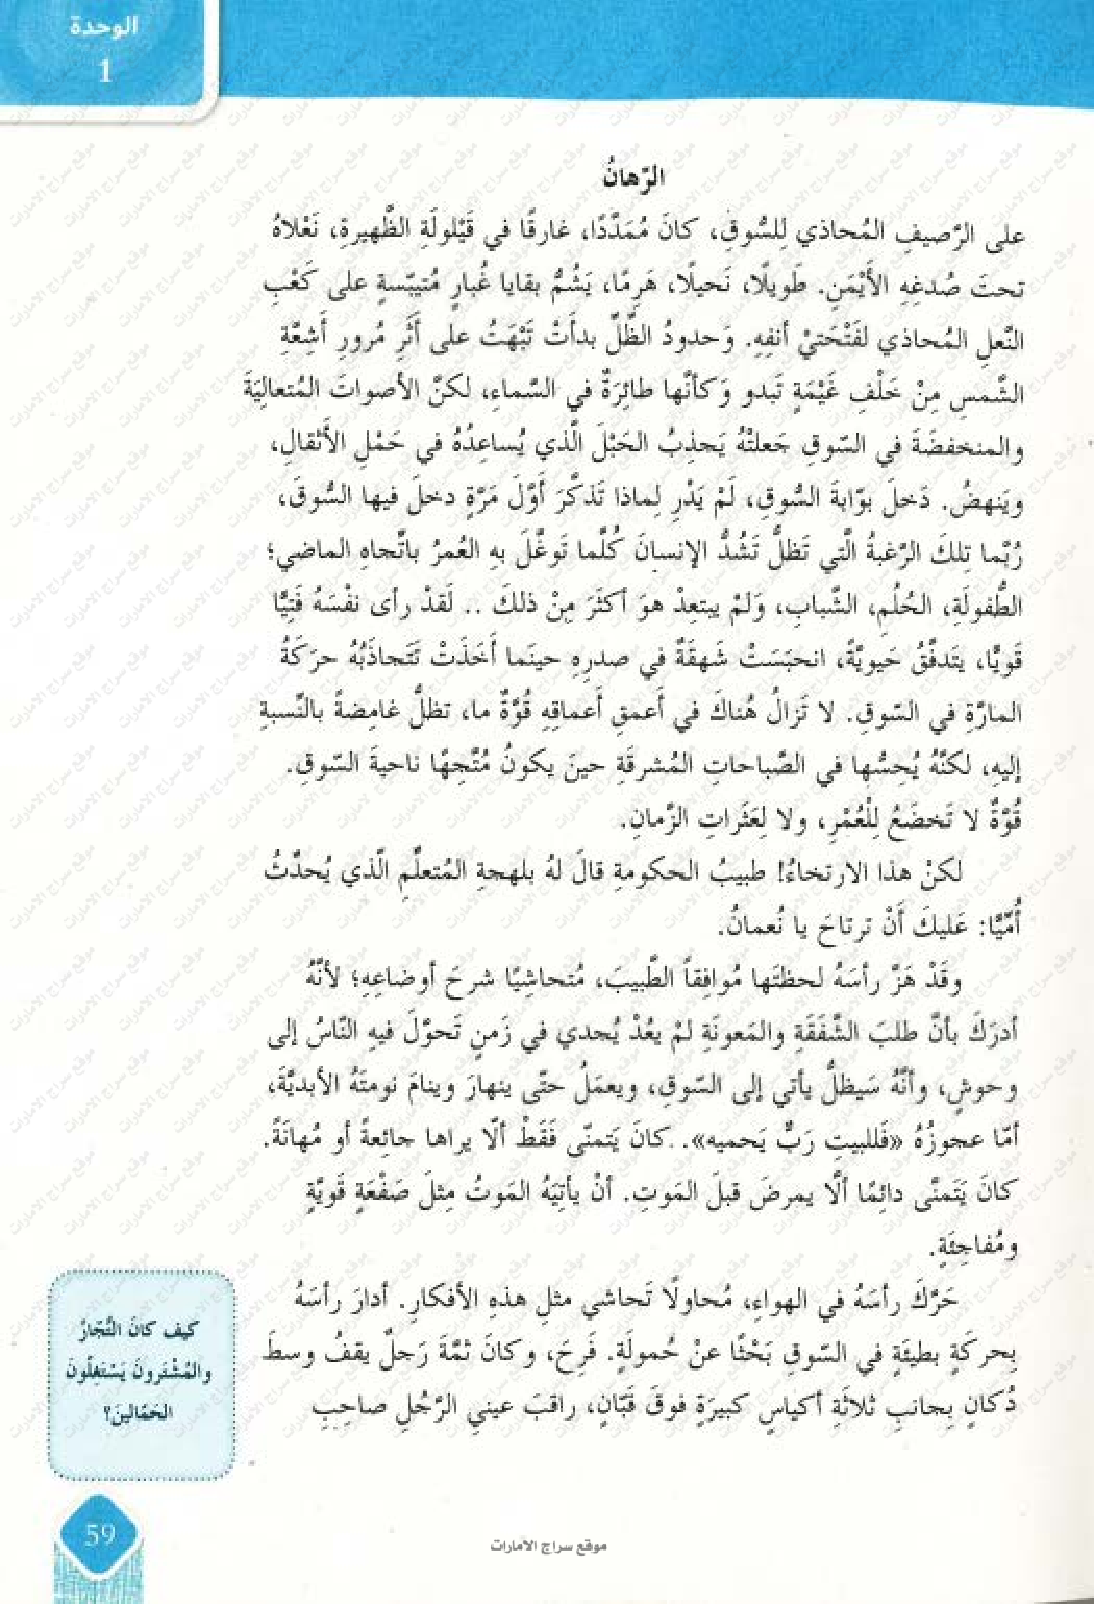 الوحدة
1
الرّهانُ
على الرّصيفِ المُحاذي لِلسُّوقِ، كانَ مُمَدَّدًا، غارقًا في قَيْلولَةِ الظَّهيرةِ، نَعْلاهُ
تحتَ صُدغِهِ الأَيْمَنِ. طَويلًا، نَحيلًا، هَرِمًا، يَشُمُّ بقايا غُبارٍ مُتيبّسةٍ على كَعْبِ
النَّعلِ المُحاذي لفَتْحَتيْ أنفِهِ. وَحدودُ الظّلِّ بدأَتْ تَبْهَتُ على أَثَرِ مُرورِ أَشِعَّةِ
الشَّمسِ مِنْ خَلْفِ غَيْمَةٍ تَبدو وَكأنّها طائِرَةٌ في السَّماءِ، لكنَّ الأصواتَ المُتعاليَةَ
والمنخفضَةَ في السّوقِ جَعلتْهُ يَجذِبُ الحَبْلَ الَّذي يُساعِدُهُ في حَمْلِ الأَثقالِ،
ويَنهضُ. دَخلَ بوّابةَ السُّوقِ، لَمْ يَدْرِ لِماذا تَذكَّرَ أَوَّلَ مَرّةٍ دخلَ فيها السُّوقَ،
رُبَّما تِلكَ الرَّغبةُ الَّتي تَظلُّ تَشُدُّ الإنسانَ كُلَّما تَوغَّلَ بهِ العُمرُ باتّجاهِ الماضي؛
الطُّفولَةِ، الحُلُمِ، الشَّبابِ، وَلمْ يبتعِدْ هوَ أكثَرَ مِنْ ذلكَ .. لَقدْ رأى نفْسَهُ فَتِيًّا
قَويًّا، يتَدفَّقُ حَيويّةً، انحبَسَتْ شَهقَةٌ في صدرِهِ حينَما أَخَذَتْ تَتَجاذَبُهُ حرَكَةُ
المارَّةِ في السّوقِ. لا تَزالُ هُناكَ في أَعمقِ أَعماقِهِ قُوَّةٌ ما، تظلُّ غامِضةً بالنّسبةِ
إليهِ، لكنَّهُ يُحِسُّها في الصَّباحاتِ المُشرقَةِ حينَ يكونُ مُتَّجِهًا ناحيةَ السّوقِ.
قُوَّةٌ لا تَخضَعُ لِلْعُمْرِ، ولا لِعَثَراتِ الزَّمانِ.
لكنْ هذا الارتخاءُ! طبيبُ الحكومةِ قالَ لهُ بلهجةِ المُتعلّمِ الّذي يُحدّثُ
أُمّيًّا: عَليكَ أَنْ ترتاحَ يا نُعمانُ.
وقَدْ هَزَّ رأسَهُ لحظتَها مُوافِقاً الطَّبيبَ، مُتحاشِيًا شرحَ أوضاعِهِ؛ لأنَّهُ
أدرَكَ بأنّ طلبَ الشَّفَقَةِ والمَعونَةِ لمْ يعُدْ يُجدي في زَمنٍ تَحوَّلَ فيهِ النّاسُ إلى
وحوشٍ، وأنَّهُ سَيظلُّ يأتي إلى السّوقِ، ويعمَلُ حتّى ينهارَ وينامَ نومتَهُ الأبديَّةَ،
أمّا عجوزُهُ «فَللبيتِ رَبٌّ يَحميه».. كانَ يَتمنّى فَقَطْ ألّا يراها جائِعةً أو مُهانَةً.
كانَ يَتَمنَّى دائِمًا ألَّا يمرضَ قبلَ المَوتِ. أنْ يأتِيَهُ المَوتُ مِثلَ صَفْعَةٍ قَويَّةٍ
ومُفاجِئَةٍ.
حَرَّكَ رأسَهُ في الهواءِ، مُحاولًا تَحاشي مثلِ هذهِ الأفكارِ. أدارَ رأسَهُ
بِحركَةٍ بطيئَةٍ في السّوقِ بَحْثًا عنْ حُمولَةٍ. فَرِحَ، وكانَ ثمَّةَ رَجلٌ يقفُ وسطَ
دُكانٍ بِجانبِ ثلاثَةِ أكياسٍ كبيرَةٍ فوقَ قَبّانٍ، راقبَ عينيِ الرَّجُلِ صاحِبِ
كيف كانَ التُّجّارُ
والمُشْتَرونَ يَسْتَغِلّونَ
الحَمّالينَ؟
59
موقع سراج الامارات